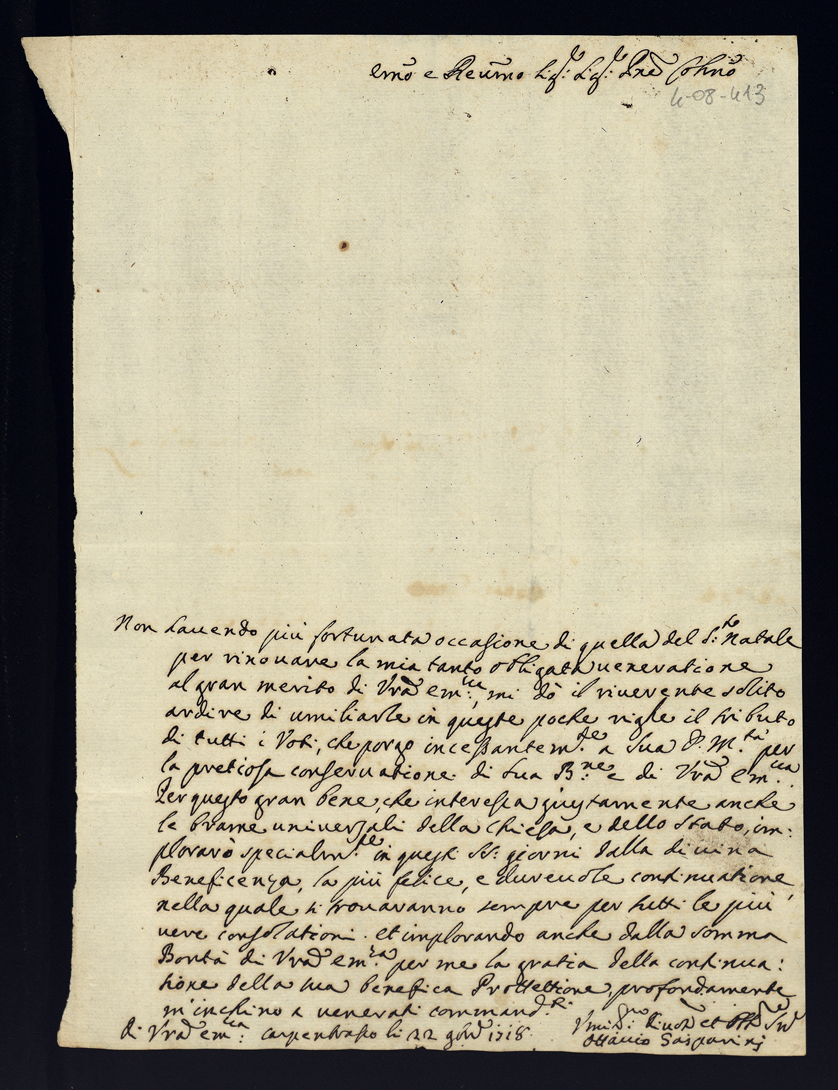 Emo e Reumo Sig: Sig: Pne Colmo
4-08-413
Non hauendo più fortunata occasione di quella del S:to Natale
per rinouare la mia tanto obligata ueneratione
al gran merito di Vrã Em:za, mi dò il riuerente solito
ardire di umiliarle in queste poche righe il tributo
di tutti i Voti, che porgo incessantem:te a Sua D. M:tà per
la pretiosa conseruatione di Sua B:ne e di Vrã Em:za.
Per questo gran bene, che interessa giustamente anche
le brame uniuersali della Chiesa, e dello Stato, im:
plorarò specialm:te in questi SS: giorni dalla diuina
Beneficenza, la più felice, e dureuole continuatione,
nella quale si trouaranno sempre per tutti le più
uere consolationi. et implorando anche dalla somma
Bontà di Vrã Em:za per me la gratia della continua:
tione della sua benefica Protettione, profondamente
m'inchino a uenerati command:ti
Di Vrã Em:za: Carpentrasso li 22 9bre 1718.
Vmil:mo Diuot et Obb Ser
Ottauio Gasparini